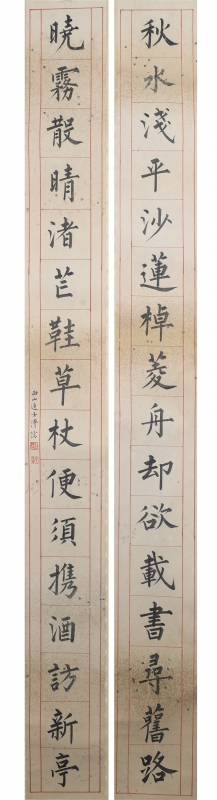 秋水淺平沙蓮棹菱舟却欲載書尋舊路
曉霧散晴渚芒鞋草杖便須攜酒訪新亭
西山逸士溥儒